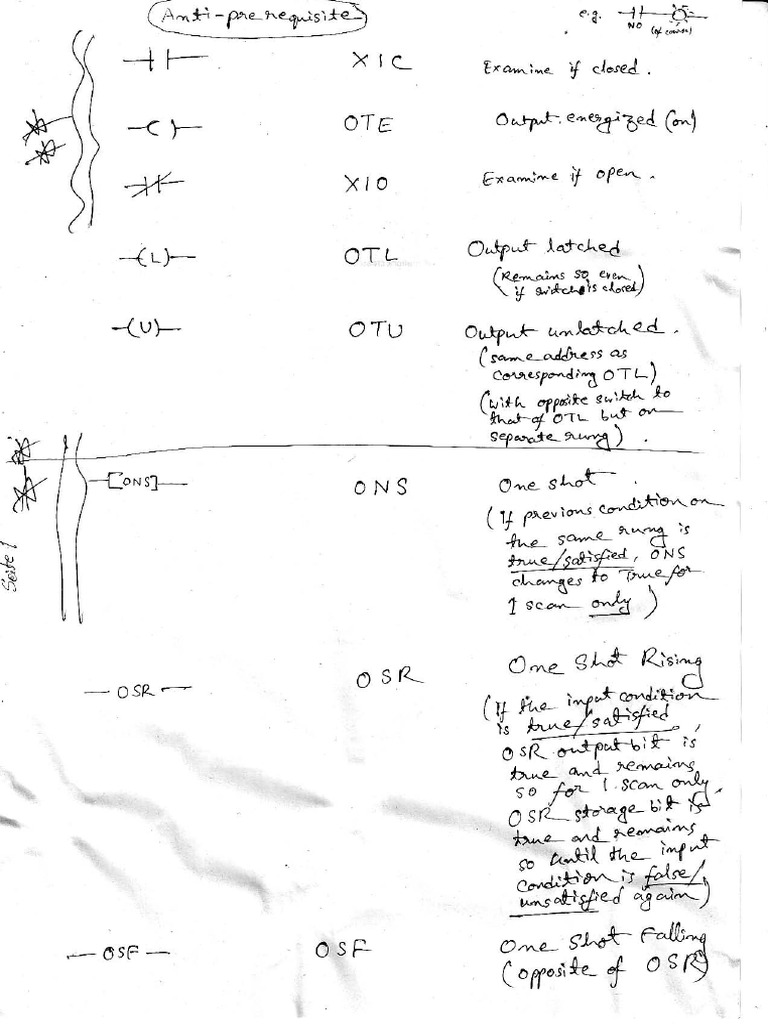 Anti-prerequisite
e.g.
NO
(of course)
XIC Examine if closed.
-( )- OTE Output energized (on)
XIO Examine if open.
-(L)- OTL Output latched
(Remains so even
if switch is closed)
-(U)- OTU Output unlatched.
(same address as
corresponding OTL)
(with opposite switch to
that of OTL but on
separate rung).
-[ONS]- ONS One shot.
(If previous condition on
the same rung is
true/satisfied, ONS
changes to True for
1 scan only)
Seite 1
-OSR- OSR One Shot Rising
(If the input condition
is true/satisfied,
OSR output bit is
true and remains
so for 1 scan only.
OSR storage bit is
true and remains
so until the input
condition is false/
unsatisfied again)
-OSF- OSF One Shot Falling
(opposite of OSR)